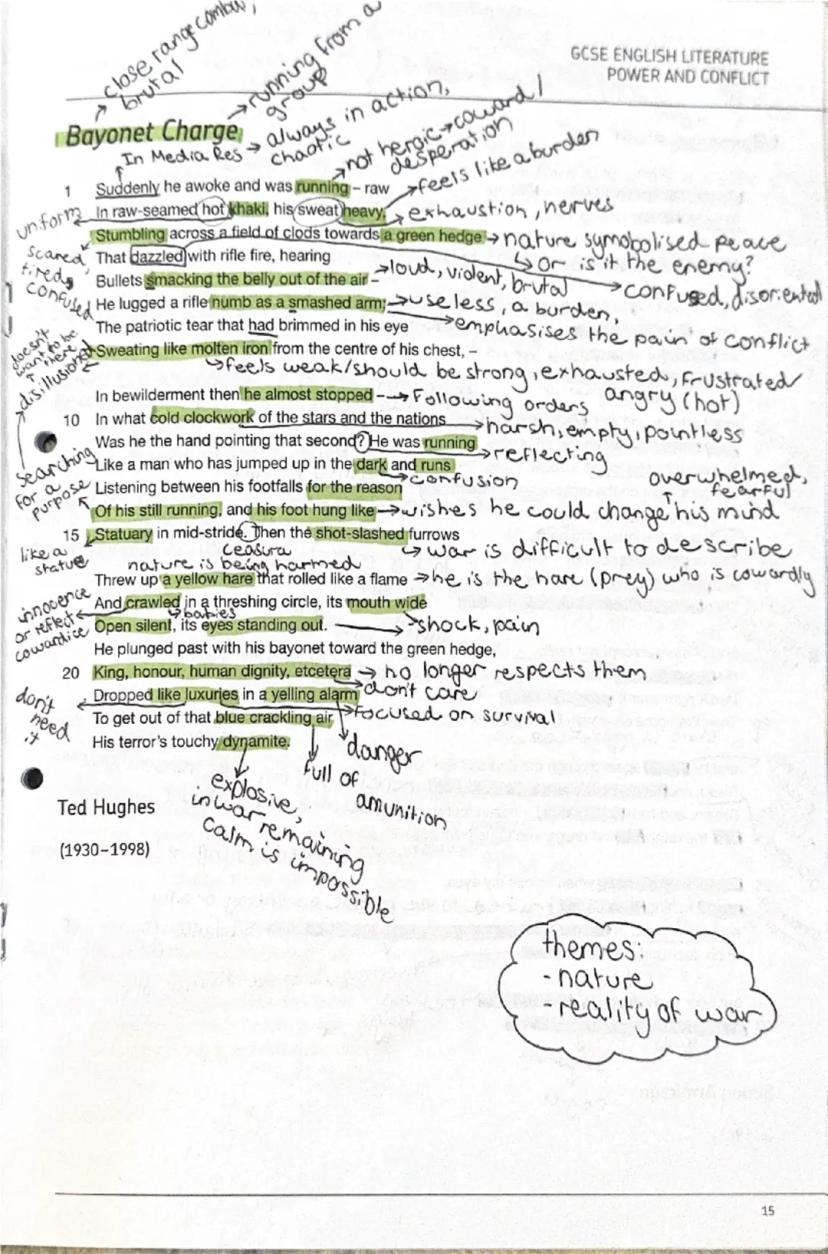 close range combat,
brutal
running from a
group
GCSE ENGLISH LITERATURE
POWER AND CONFLICT
Bayonet Charge
In Media Res → always in action,
chaotic
not heroic → coward /
desperation
feels like a burden
1 Suddenly he awoke and was running – raw
In raw-seamed hot khaki, his sweat heavy,
uniform
exhaustion, nerves
Stumbling across a field of clods towards a green hedge
scared,
tired,
confused
nature symobolised peace
or is it the enemy?
That dazzled with rifle fire, hearing
confused, disoriented
Bullets smacking the belly out of the air –
loud, violent, brutal
He lugged a rifle numb as a smashed arm;
useless, a burden,
emphasises the pain of conflict
The patriotic tear that had brimmed in his eye
doesn't
want to be
there
disillusioned
Sweating like molten iron from the centre of his chest, –
feels weak/should be strong, exhausted, frustrated
angry (hot)
In bewilderment then he almost stopped –
Following orders
10 In what cold clockwork of the stars and the nations
harsh, empty, pointless
Was he the hand pointing that second? He was running
reflecting
Like a man who has jumped up in the dark and runs
confusion
searching
for a
purpose
Listening between his footfalls for the reason
overwhelmed,
fearful
Of his still running, and his foot hung like
wishes he could change his mind
15 Statuary in mid-stride. Then the shot-slashed furrows
like a
statue
ceasura
war is difficult to describe
nature is being harmed
Threw up a yellow hare that rolled like a flame
he is the hare (prey) who is cowardly
And crawled in a threshing circle, its mouth wide
innocence
or reflect
cowardice
babies
Open silent, its eyes standing out.
shock, pain
He plunged past with his bayonet toward the green hedge,
20 King, honour, human dignity, etcetera
no longer respects them
Dropped like luxuries in a yelling alarm
don't care
don't
need
it
To get out of that blue crackling air
focused on survival
His terror's touchy dynamite.
danger
full of
amunition
explosive,
in war remaining
calm is impossible
Ted Hughes
(1930–1998)
themes:
- nature
- reality of war
15